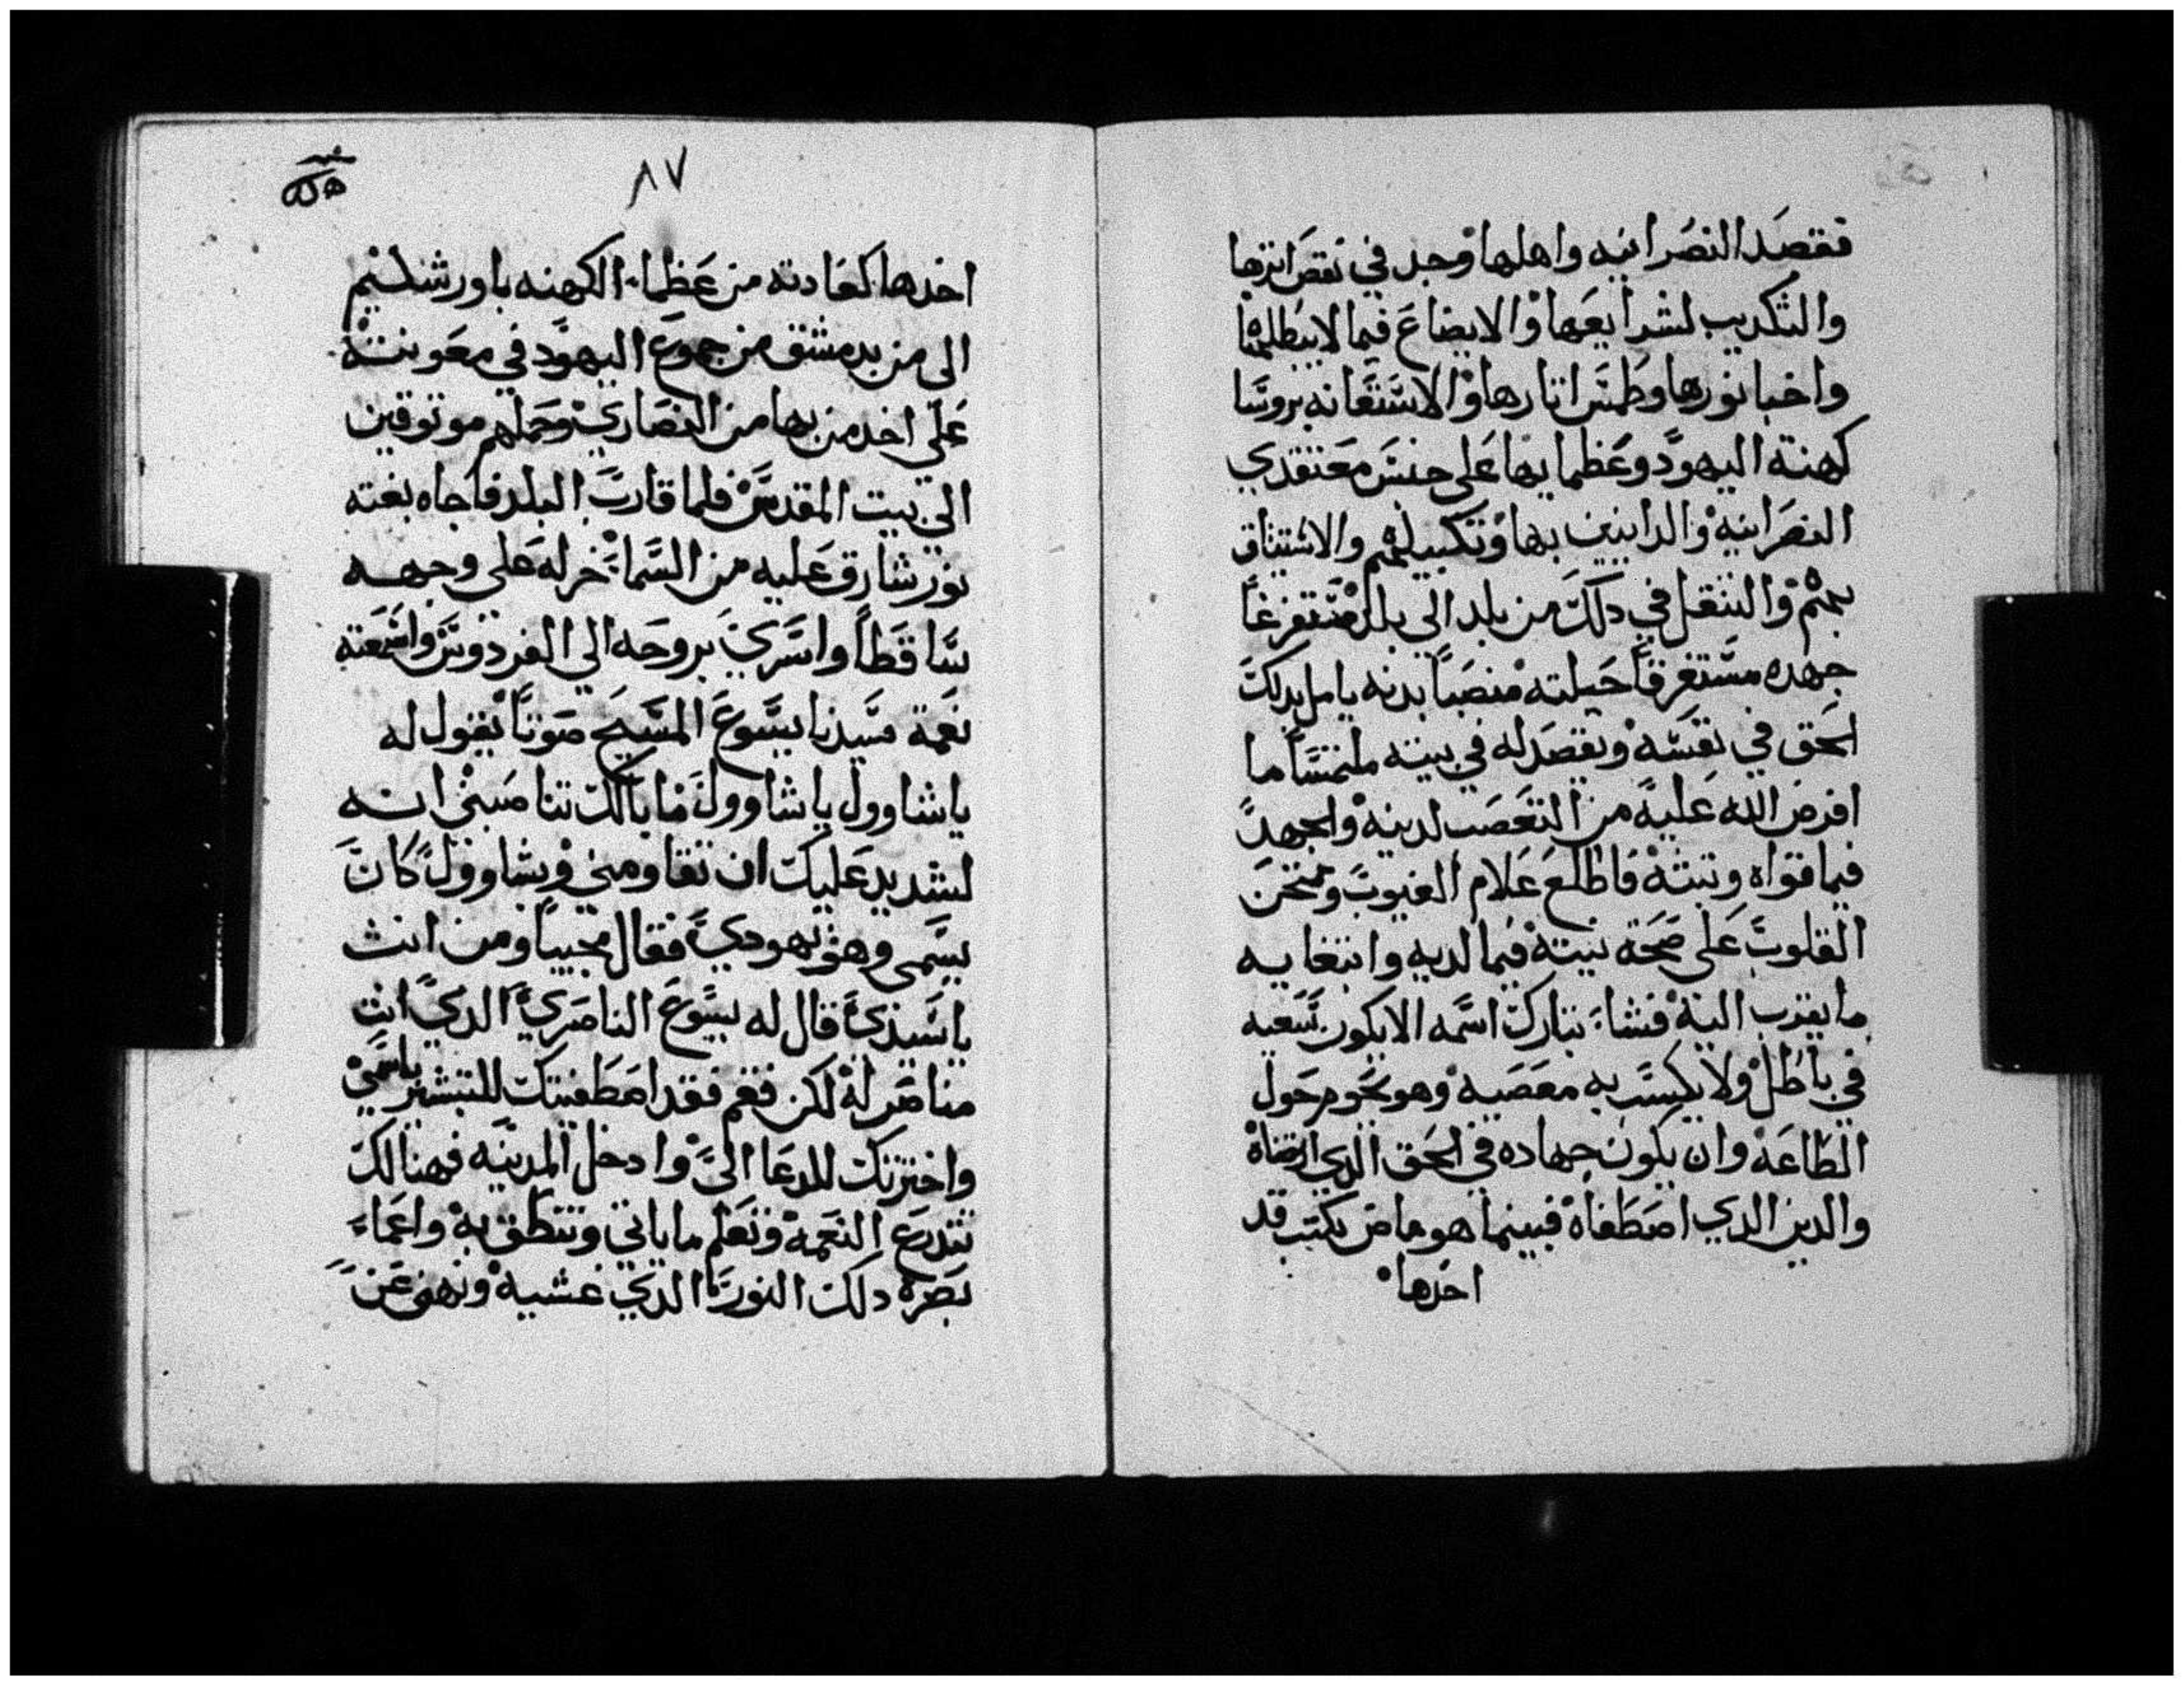 فقصد النصرانيه واهلها وجد في نقض اثرها
والتكديب لشرايعها والايضاع فيما لا يبطلها
واخبا نورها وطمس اتارها والاستعانه بروسا
كهنة اليهود وعظمايها على حبس معتقدي
النصرانيه والداينين بها وتكبيلهم والاستيتاق
بهم والتنقل في دلك من بلد الي بلد مستفرغاً
جهده مستغرقاً حيلته منصباً بدنه يامل بدلك
الحق في نفسه ويقصد له في بيته ملتمساً ما
افرض الله عليه من التعصب لدينه والجهد
فيما قواه وتبته فاطلع علام الغيوب وممتحن
القلوب على صحة نيته فيما لديه وابتغايه
ما يقرب اليه فشاء تبارك اسمه الا يكون سعيه
في باطل ولا يكسب به معصيه وهو نحوم حول
الطاعه وان يكون جهاده في الحق الدي ارتضاه
والدين الدي اصطفاه فبينما هو ماض بكتب قد
اخدها
٨٧
اخدها كعادته من عظماء الكهنه باورشليم
الى من بدمشق من جموع اليهود في معونته
على اخد من بها من النصاري وحملهم موتوقين
الي بيت المقدس فلما قارب البلد فاجاه بغته
نور شارق عليه من السماء خر له على وجهه
ساقطاً واسري بروحه الي الفردوس واسمعته
نعمة سيدنا يسوع المسيح صوتاً يقول له
ياشاوول ياشاوول ما بالك تناصبني انه
لشديد عليك ان تقاومني وبشاوول كان
يسمى وهو يهودي فقال مجيباً ومن انت
ياسيدي قال له يسوع الناصري الدي انت
مناصر له لكن فقم فقد اصطفيتك للتبشير باسمي
واخترتك للدعا اليّ وادخل المدينه فهنالك
تتدرع النعمه وتعلم ما ياتي وتنطق به واعماء
بصره دلك النور الدي غشيه ونهض عن